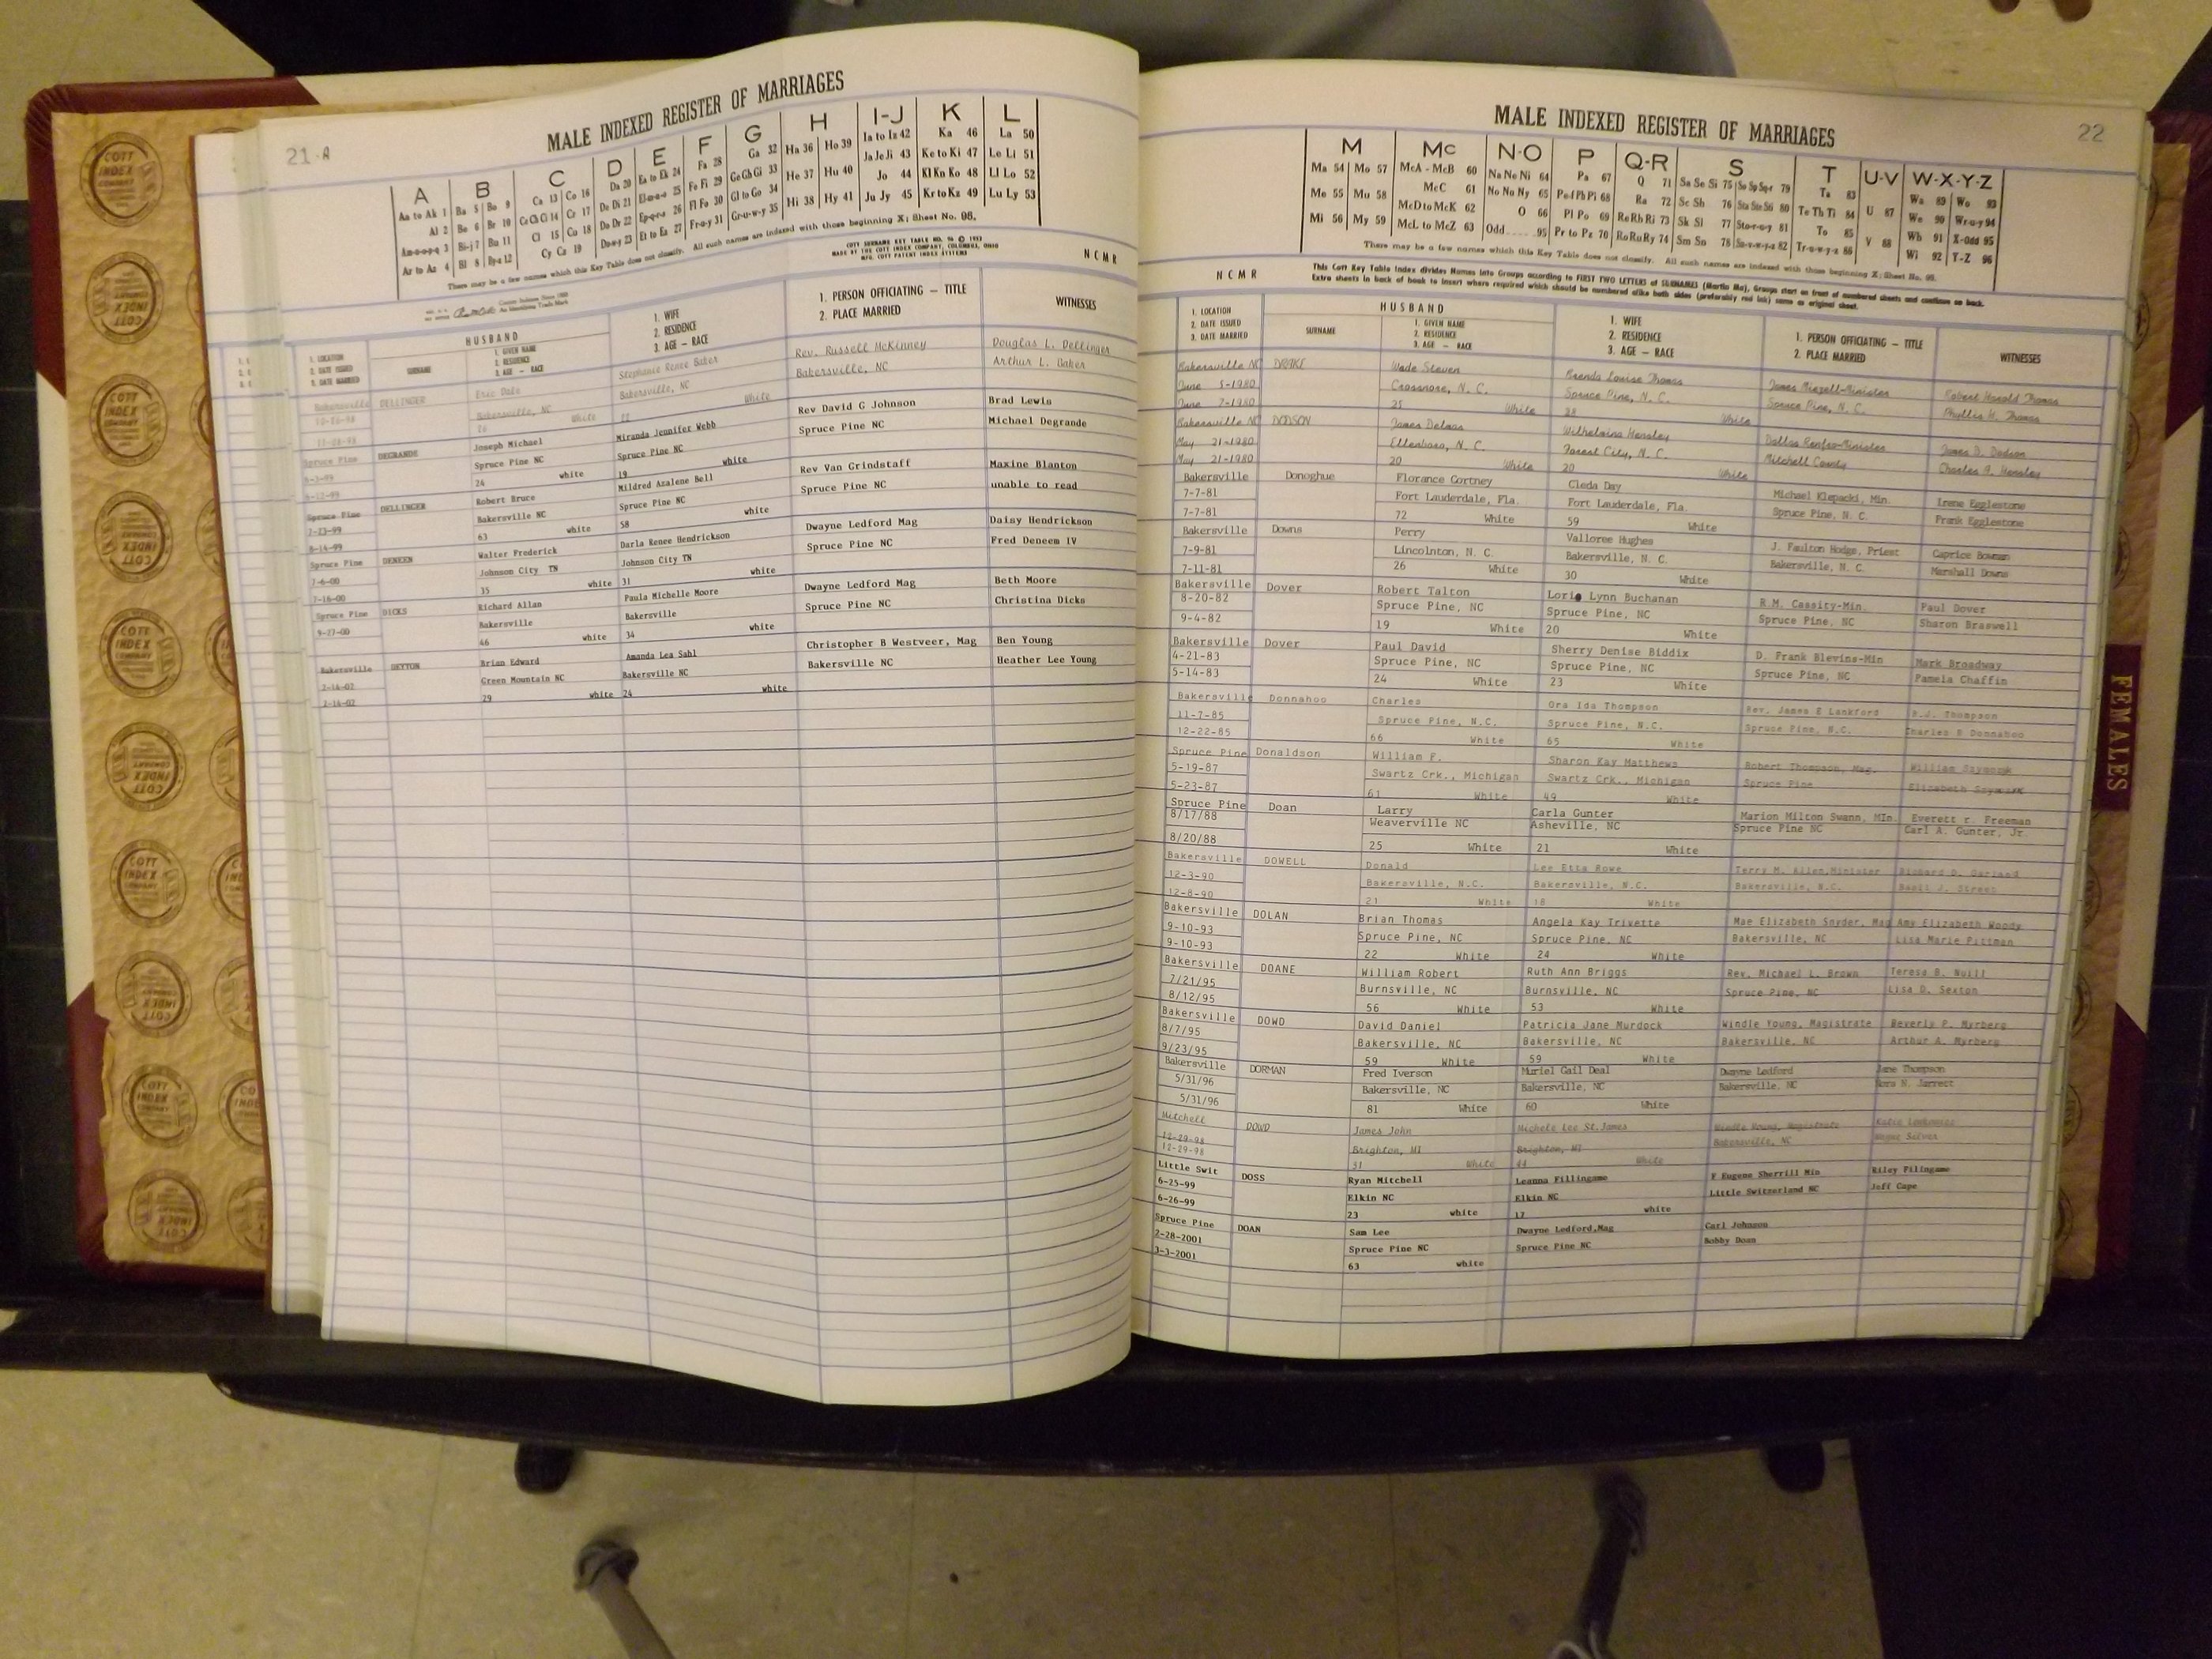 21-A
MALE INDEXED REGISTER OF MARRIAGES
A B C D E F G H I-J K L
Aa to Ak 1 Ba 5 Bo 9 Ca 13 Co 16 Da 20 Ea to Ek 24 Fa 28 Ga 32 Ha 36 Ho 39 Ia to Iz 42 Ka 46 La 50
Al 2 Be 6 Br 10 Ce Ch Ci 14 Cr 17 De Di 21 25 Fe Fi 29 Ge Gh Gi 33 He 37 Hu 40 Ja Je Ji 43 Ke to Ki 47 Le Li 51
3 Bi-j 7 Bu 11 Cl 15 Cu 18 Do Dr 22 26 Fl Fo 30 Gl to Go 34 Hi 38 Hy 41 Jo 44 Kl Kn Ko 48 Ll Lo 52
Ar to Az 4 Bl 8 By-z 12 Cy Cz 19 Du-w-y 23 Et to Ez 27 Fr-u-y 31 Gr-u-w-y 35 Ju Jy 45 Kr to Kz 49 Lu Ly 53
There may be a few names which this Key Table does not classify. All such names are indexed with those beginning X; Sheet No. 95.
COTT SURNAME KEY TABLE NO. 96 © 1953
MADE BY THE COTT INDEX COMPANY, COLUMBUS, OHIO
MFG. COTT PATENT INDEX SYSTEMS
N C M R
1. LOCATION
2. DATE ISSUED
3. DATE MARRIED
HUSBAND
SURNAME
1. GIVEN NAME
2. RESIDENCE
3. AGE - RACE
1. WIFE
2. RESIDENCE
3. AGE - RACE
1. PERSON OFFICIATING - TITLE
2. PLACE MARRIED
WITNESSES
Bakersville DELLINGER Eric Dale Stephanie Renee Baker Rev. Russell McKinney Douglas L. Dellinger
Bakersville, NC Bakersville, NC Bakersville, NC Arthur L. Baker
White White
Spruce Pine DEGRANDE Joseph Michael Miranda Jennifer Webb Rev David G Johnson Brad Lewis
Spruce Pine NC Spruce Pine NC Spruce Pine NC Michael Degrande
24 white 19 white
Spruce Pine DELLINGER Robert Bruce Mildred Azalene Bell Rev Van Grindstaff Maxine Blanton
7-23-99 Bakersville NC Spruce Pine NC Spruce Pine NC unable to read
8-14-99 63 white 58 white
Spruce Pine DENEEN Walter Frederick Darla Renee Hendrickson Dwayne Ledford Mag Daisy Hendrickson
7-6-00 Johnson City TN Johnson City TN Spruce Pine NC Fred Deneem IV
7-16-00 35 white 31 white
Spruce Pine DICKS Richard Allan Paula Michelle Moore Dwayne Ledford Mag Beth Moore
9-27-00 Bakersville Bakersville Spruce Pine NC Christina Dicks
46 white 34 white
Bakersville DEYTON Brian Edward Amanda Lea Sahl Christopher B Westveer, Mag Ben Young
2-14-02 Green Mountain NC Bakersville NC Bakersville NC Heather Lee Young
2-16-02 29 white 24 white
22
MALE INDEXED REGISTER OF MARRIAGES
M Mc N-O P Q-R S T U-V W-X-Y-Z
Ma 54 Mo 57 McA - McB 60 Na Ne Ni 64 Pa 67 Q 71 Sa Se Si 75 So Sp Sq-r 79 Ta 83 U 87 Wa 89 Wo 93
Me 55 Mu 58 McC 61 No Nu Ny 65 Pe-f Ph Pi 68 Ra 72 Sc Sh 76 Sta Ste Sti 80 Te Th Ti 84 V 88 We 90 Wr-u-y 94
Mi 56 My 59 McD to McK 62 O 66 Pl Po 69 Re Rh Ri 73 Sk Sl 77 Sto-r-u-y 81 To 85 Wh 91 X-Odd 95
McL to McZ 63 Odd 95 Pr to Pz 70 Ro Ru Ry 74 Sm Sn 78 Su-v-w-y-z 82 Tr-u-w-y-z 86 Wi 92 Y-Z 96
There may be a few names which this Key Table does not classify. All such names are indexed with those beginning X; Sheet No. 95.
N C M R
This Cott Key Table Index divides Names into Groups according to FIRST TWO LETTERS of SURNAMES (Martin Ma), Groups start on front of numbered sheets and continue on back.
Extra sheets in back of book to insert where required which should be numbered alike both sides (preferably red ink) same as original sheet.
1. LOCATION
2. DATE ISSUED
3. DATE MARRIED
HUSBAND
SURNAME
1. GIVEN NAME
2. RESIDENCE
3. AGE - RACE
1. WIFE
2. RESIDENCE
3. AGE - RACE
1. PERSON OFFICIATING - TITLE
2. PLACE MARRIED
WITNESSES
Bakersville NC DRAKE Wade Steven Brenda Louise Thomas James Mizzell-Minister Robert Harold Thomas
June 5-1980 Crossnore, N. C. Spruce Pine, N. C. Spruce Pine, N. C. Phyllis H. Thomas
June 7-1980 25 White 28 White
Bakersville NC DODSON James Delmas Wilhelmina Hensley Dallas Renfro-Minister James D. Dodson
May 21-1980 Ellenboro, N. C. Forest City, N. C. Mitchell County Charles A. Hensley
May 21-1980 20 White 20 White
Bakersville Donoghue Florance Cortney Cleda Day Michael Klepacki, Min. Irene Egglestone
7-7-81 Fort Lauderdale, Fla. Fort Lauderdale, Fla. Spruce Pine, N. C. Frank Egglestone
7-7-81 72 White 59 White
Bakersville Downs Perry Valloree Hughes J. Faulton Hodge, Priest Caprice Bowman
7-9-81 Lincolnton, N. C. Bakersville, N. C. Bakersville, N. C. Marshall Downs
7-11-81 26 White 30 White
Bakersville Dover Robert Talton Lorie Lynn Buchanan R.M. Cassity-Min. Paul Dover
8-20-82 Spruce Pine, NC Spruce Pine, NC Spruce Pine, NC Sharon Braswell
9-4-82 19 White 20 White
Bakersville Dover Paul David Sherry Denise Biddix D. Frank Blevins-Min Mark Broadway
4-21-83 Spruce Pine, NC Spruce Pine, NC Spruce Pine, NC Pamela Chaffin
5-14-83 24 White 23 White
Bakersville Donnahoo Charles Ora Ida Thompson Rev. James E Lankford R.J. Thompson
11-7-85 Spruce Pine, N.C. Spruce Pine, N.C. Spruce Pine, N.C. Charles B Donnahoo
12-22-85 66 White 65 White
Spruce Pine Donaldson William F. Sharon Kay Matthews Robert Thompson, Mag. William
5-19-87 Swartz Crk., Michigan Swartz Crk., Michigan Spruce Pine Elizabeth
5-23-87 61 White 49 White
Spruce Pine Doan Larry Carla Gunter Marion Milton Swann, MIn. Everett r. Freeman
8/17/88 Weaverville NC Asheville, NC Spruce Pine NC Carl A. Gunter, Jr.
8/20/88 25 White 21 White
Bakersville DOWELL Donald Lee Etta Rowe Terry M. Allen,Minister Richard D. Garland
12-3-90 Bakersville, N.C. Bakersville, N.C. Bakersville, N.C. J. Street
12-8-90 21 White 18 White
Bakersville DOLAN Brian Thomas Angela Kay Trivette Mae Elizabeth Snyder, Mag Amy Elizabeth Woody
9-10-93 Spruce Pine, NC Spruce Pine, NC Bakersville, NC Lisa Marie Pittman
9-10-93 22 White 24 White
Bakersville DOANE William Robert Ruth Ann Briggs Rev. Michael L. Brown Teresa B. Nuill
7/21/95 Burnsville, NC Burnsville, NC Spruce Pine, NC Lisa D. Sexton
8/12/95 56 White 53 White
Bakersville DOWD David Daniel Patricia Jane Murdock Windle Young, Magistrate Beverly P. Myrberg
8/7/95 Bakersville, NC Bakersville, NC Bakersville, NC Arthur A. Myrberg
9/23/95 59 White 59 White
Bakersville DORMAN Fred Iverson Muriel Gail Deal Dwayne Ledford Jane Thompson
5/31/96 Bakersville, NC Bakersville, NC Bakersville, NC Nora N. Jarrett
5/31/96 81 White 60 White
Mitchell DOWD James John Michele Lee St.James Windle Young, Magistrate Katie
12-29-98 Brighton, MI Brighton, MI Bakersville, NC Silver
12-29-98 51 White 44 White
Little Swit DOSS Ryan Mitchell Leanna Fillingame F Eugene Sherrill Min Riley Filingame
6-25-99 Elkin NC Elkin NC Little Switzerland NC Jeff Cape
6-26-99 23 white 17 white
Spruce Pine DOAN Sam Lee Dwayne Ledford,Mag Carl Johnson
2-28-2001 Spruce Pine NC Spruce Pine NC Bobby Doan
3-3-2001 63 white
FEMALES
COTT INDEX COMPANY